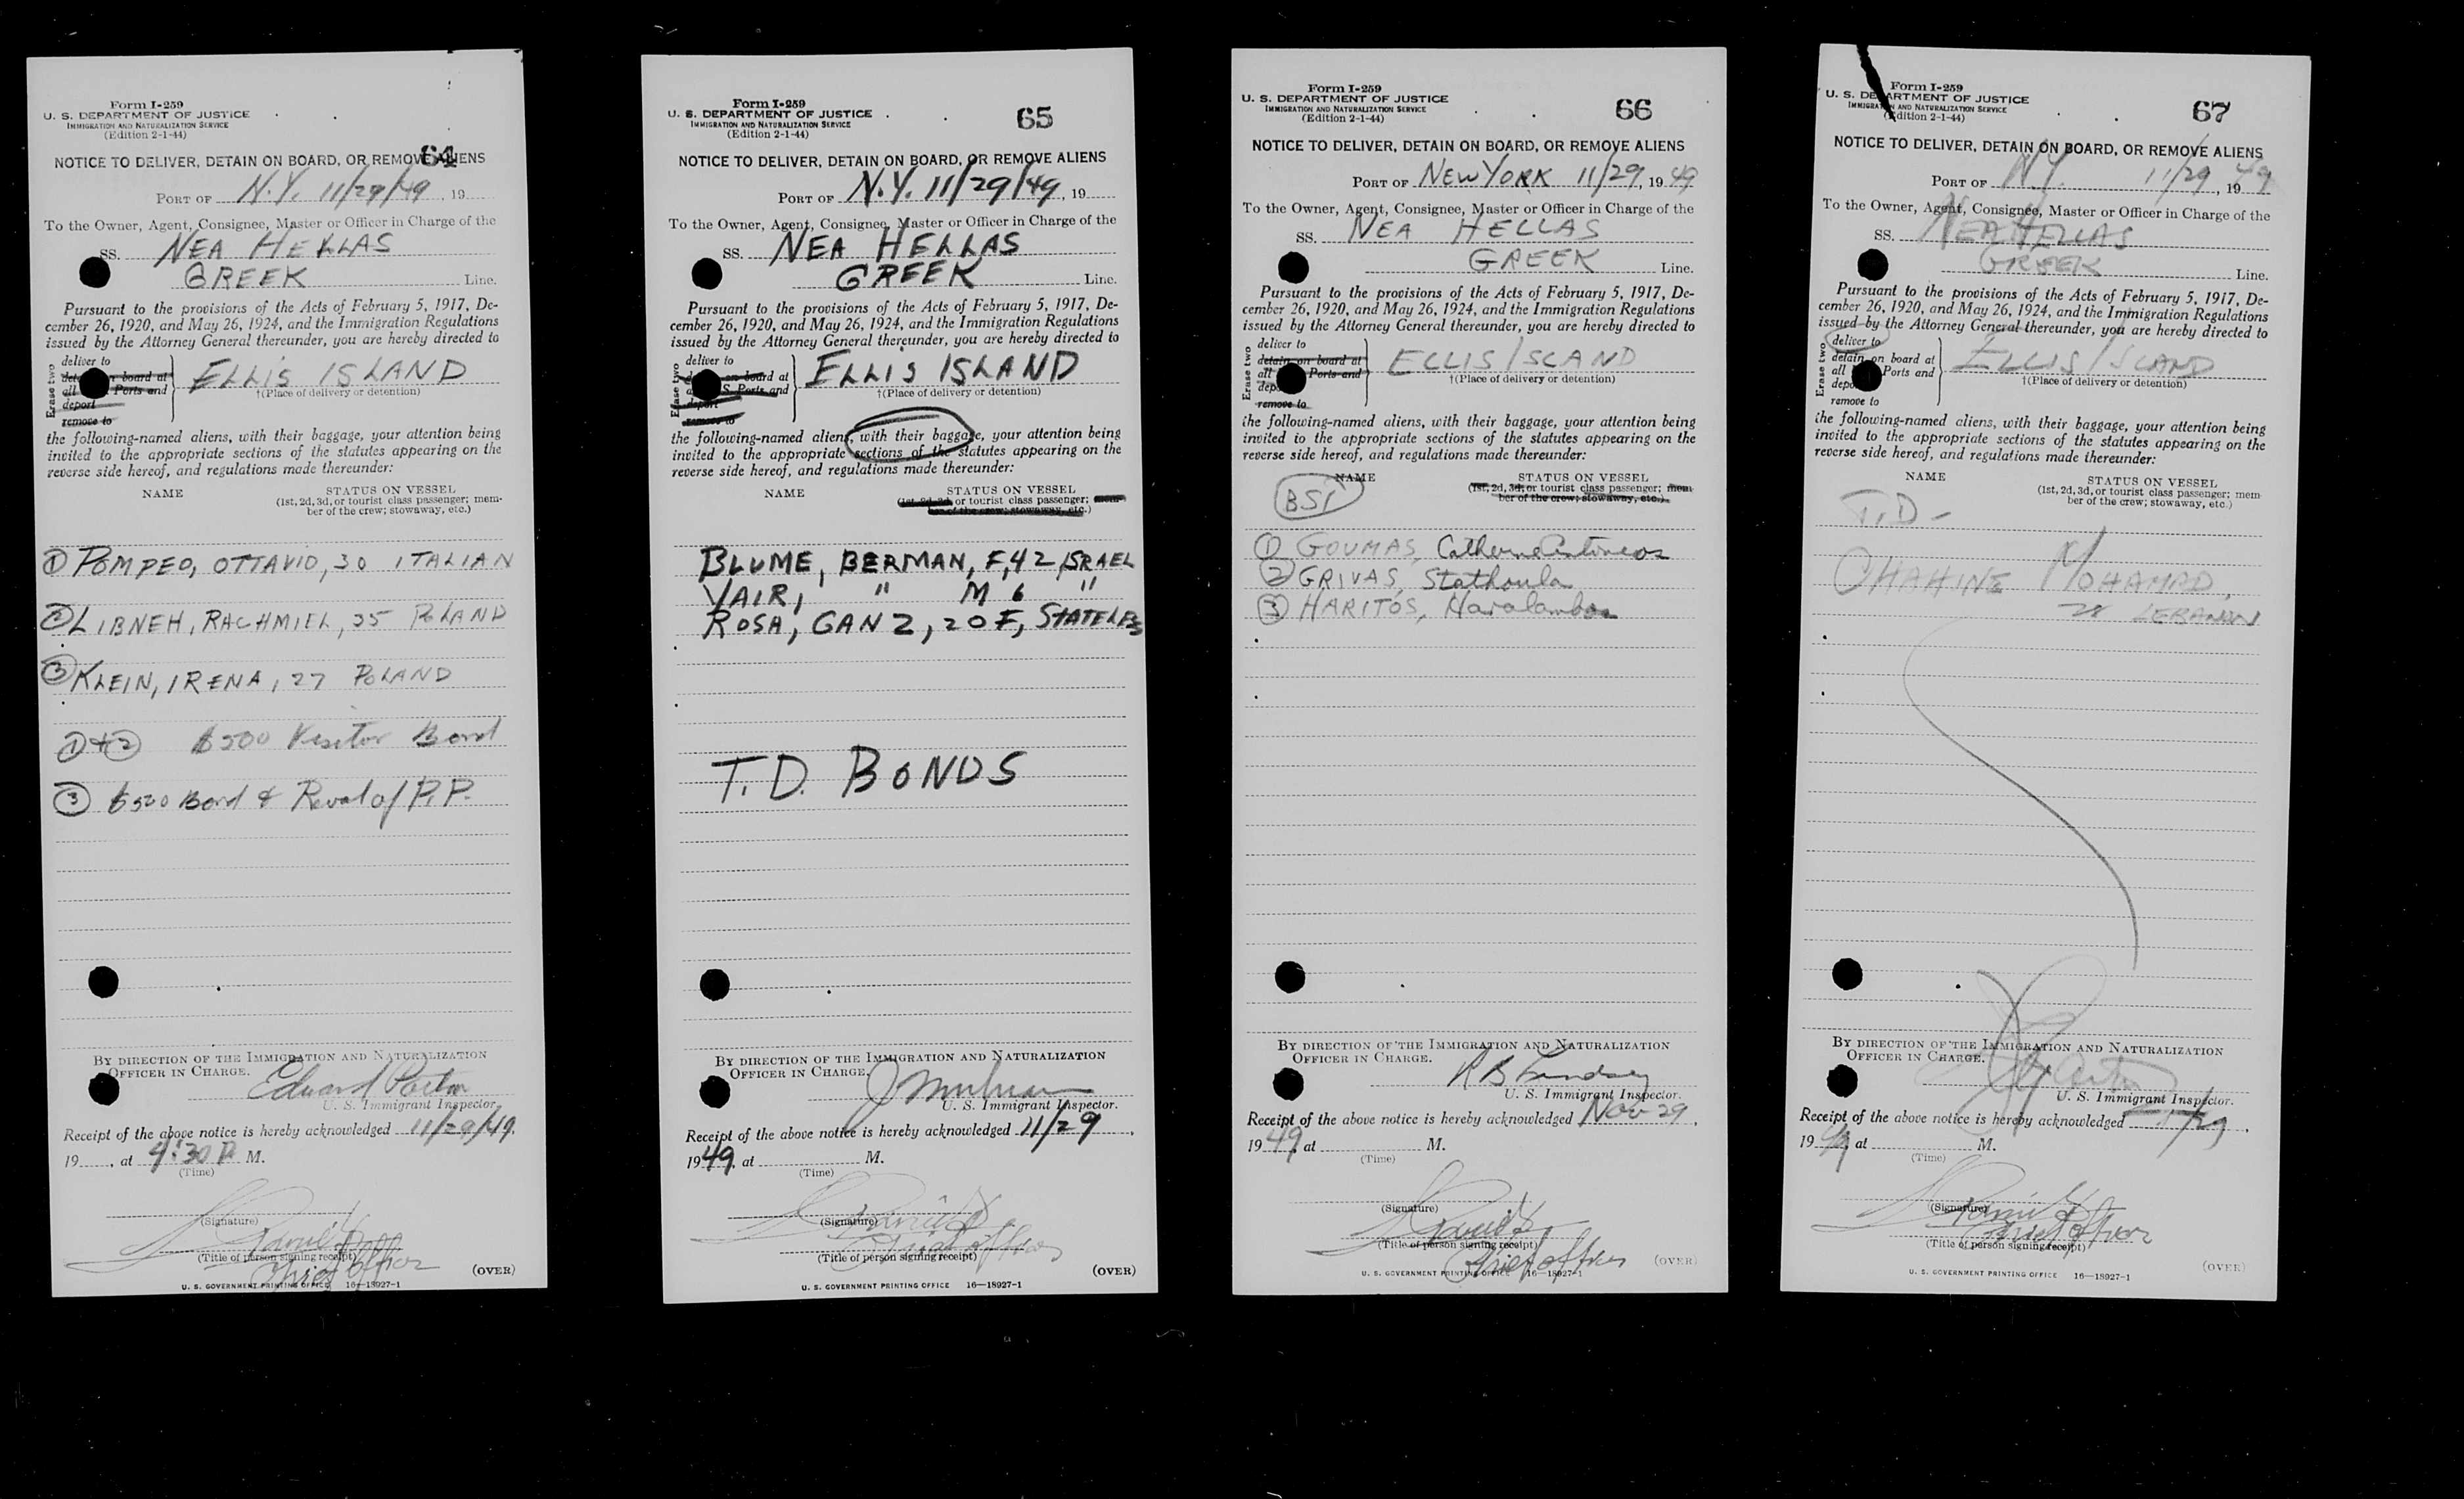 Form I-259
U. S. DEPARTMENT OF JUSTICE
IMMIGRATION AND NATURALIZATION SERVICE
(Edition 2-1-44)
64
NOTICE TO DELIVER, DETAIN ON BOARD, OR REMOVE ALIENS
PORT OF N.Y. 11/29/49, 19
To the Owner, Agent, Consignee, Master or Officer in Charge of the
SS. NEA HELLAS
GREEK Line.
Pursuant to the provisions of the Acts of February 5, 1917, De-
cember 26, 1920, and May 26, 1924, and the Immigration Regulations
issued by the Attorney General thereunder, you are hereby directed to
Erase two
deliver to
board at
all Ports and
deport
remove to
ELLIS ISLAND
†(Place of delivery or detention)
the following-named aliens, with their baggage, your attention being
invited to the appropriate sections of the statutes appearing on the
reverse side hereof, and regulations made thereunder:
NAME STATUS ON VESSEL
(1st, 2d, 3d, or tourist class passenger; mem-
ber of the crew; stowaway, etc.)
① POMPEO, OTTAVIO, 30 ITALIAN
② LIBNEH, RACHMIEL, 35 POLAND
③ KLEIN, IRENA, 27 POLAND
① + ② $500 Visitor Bond
③ $500 Bond & of P.P.
BY DIRECTION OF THE IMMIGRATION AND NATURALIZATION
OFFICER IN CHARGE.
Edward
U. S. Immigrant Inspector.
Receipt of the above notice is hereby acknowledged 11/29/49.
19, at 4:30 P. M.
(Time)
(Signature)
(Title of person signing receipt)
Chief Officer
(OVER)
U. S. GOVERNMENT PRINTING OFFICE 16—18927-1
Form I-259
U. S. DEPARTMENT OF JUSTICE
IMMIGRATION AND NATURALIZATION SERVICE
(Edition 2-1-44)
65
NOTICE TO DELIVER, DETAIN ON BOARD, OR REMOVE ALIENS
PORT OF N.Y. 11/29/49, 19
To the Owner, Agent, Consignee, Master or Officer in Charge of the
SS. NEA HELLAS
GREEK Line.
Pursuant to the provisions of the Acts of February 5, 1917, De-
cember 26, 1920, and May 26, 1924, and the Immigration Regulations
issued by the Attorney General thereunder, you are hereby directed to
Erase two
deliver to
on board at
S. Ports and
deport
remove to
ELLIS ISLAND
†(Place of delivery or detention)
the following-named aliens, with their baggage, your attention being
invited to the appropriate sections of the statutes appearing on the
reverse side hereof, and regulations made thereunder:
NAME STATUS ON VESSEL
(1st, 2d, 3d, or tourist class passenger; mem-
ber of the crew; stowaway, etc.)
BLUME, BERMAN, F, 42 ISRAEL
YAIR, " M 6 "
ROSA, GANZ, 20 F, STATELESS
T.D. BONDS
BY DIRECTION OF THE IMMIGRATION AND NATURALIZATION
OFFICER IN CHARGE.
U. S. Immigrant Inspector.
Receipt of the above notice is hereby acknowledged 11/29,
1949, at M.
(Time)
(Signature)
(Title of person signing receipt)
Chief Officer
(OVER)
U. S. GOVERNMENT PRINTING OFFICE 16—18927-1
Form I-259
U. S. DEPARTMENT OF JUSTICE
IMMIGRATION AND NATURALIZATION SERVICE
(Edition 2-1-44)
66
NOTICE TO DELIVER, DETAIN ON BOARD, OR REMOVE ALIENS
PORT OF NEW YORK 11/29, 1949
To the Owner, Agent, Consignee, Master or Officer in Charge of the
SS. NEA HELLAS
GREEK Line.
Pursuant to the provisions of the Acts of February 5, 1917, De-
cember 26, 1920, and May 26, 1924, and the Immigration Regulations
issued by the Attorney General thereunder, you are hereby directed to
Erase two
deliver to
detain on board at
all Ports and
remove to
ELLIS ISLAND
†(Place of delivery or detention)
the following-named aliens, with their baggage, your attention being
invited to the appropriate sections of the statutes appearing on the
reverse side hereof, and regulations made thereunder:
NAME STATUS ON VESSEL
(1st, 2d, 3d, or tourist class passenger; mem
ber of the crew; stowaway, etc.)
BSI
① GOUMAS, Catherine
② GRIVAS, Stathoula
③ HARITOS, Haralambos
BY DIRECTION OF THE IMMIGRATION AND NATURALIZATION
OFFICER IN CHARGE.
R B Lindsey
U. S. Immigrant Inspector.
Receipt of the above notice is hereby acknowledged Nov 29,
1949, at M.
(Time)
(Signature)
(Title of person signing receipt)
Chief Officer
(OVER)
U. S. GOVERNMENT PRINTING OFFICE 16—18927-1
Form I-259
U. S. DEPARTMENT OF JUSTICE
IMMIGRATION AND NATURALIZATION SERVICE
(Edition 2-1-44)
67
NOTICE TO DELIVER, DETAIN ON BOARD, OR REMOVE ALIENS
PORT OF N.Y. 11/29, 1949
To the Owner, Agent, Consignee, Master or Officer in Charge of the
SS. NEA HELLAS
GREEK Line.
Pursuant to the provisions of the Acts of February 5, 1917, De-
cember 26, 1920, and May 26, 1924, and the Immigration Regulations
issued by the Attorney General thereunder, you are hereby directed to
Erase two
deliver to
detain on board at
all Ports and
remove to
ELLIS ISLAND
†(Place of delivery or detention)
the following-named aliens, with their baggage, your attention being
invited to the appropriate sections of the statutes appearing on the
reverse side hereof, and regulations made thereunder:
NAME STATUS ON VESSEL
(1st, 2d, 3d, or tourist class passenger; mem
ber of the crew; stowaway, etc.)
T.D -
CHAHINE MOHAMAD,
28 LEBANON
BY DIRECTION OF THE IMMIGRATION AND NATURALIZATION
OFFICER IN CHARGE.
U. S. Immigrant Inspector.
Receipt of the above notice is hereby acknowledged 11/29,
1949 at M.
(Time)
(Signature)
(Title of person signing receipt)
Chief Officer
(OVER)
U. S. GOVERNMENT PRINTING OFFICE 16—18927-1